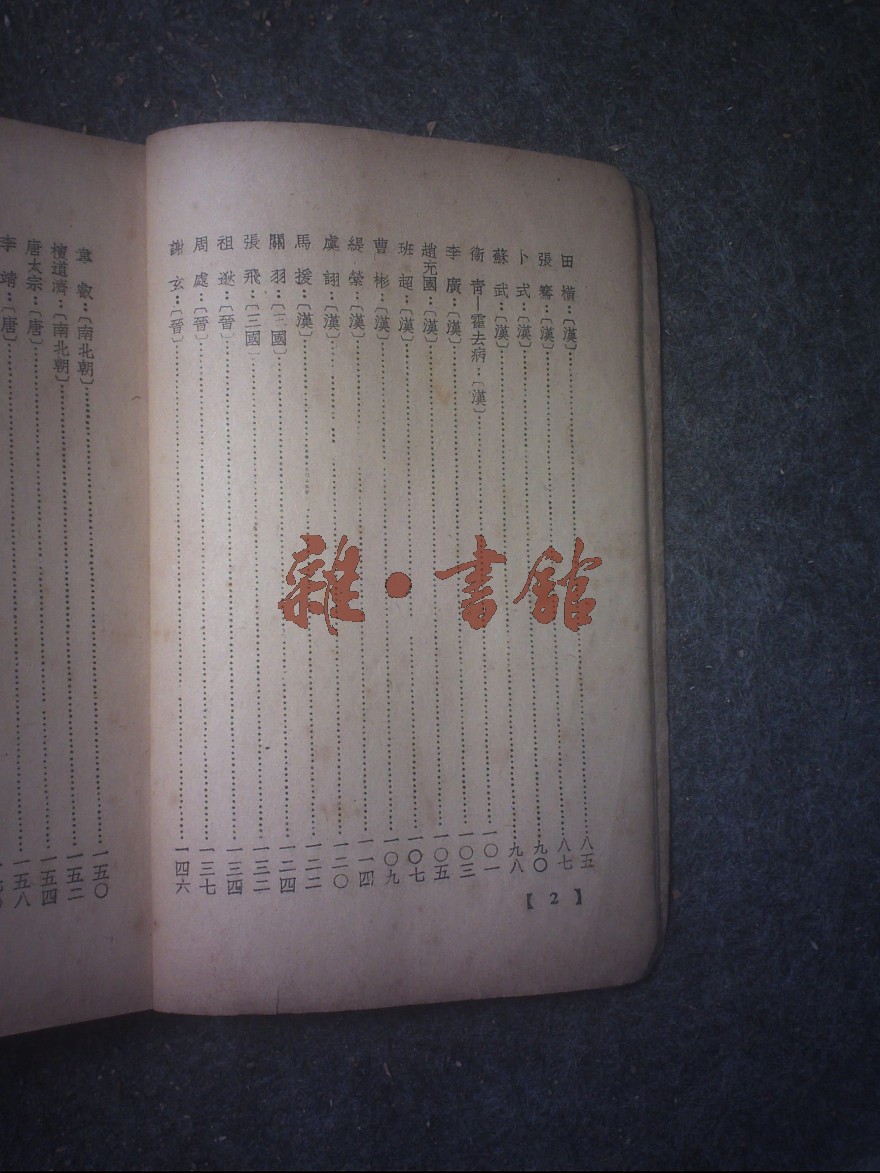 田橫：〔漢〕……八五
張騫：〔漢〕……八七
卜式：〔漢〕……九〇
蘇武：〔漢〕……九八
衛青—霍去病：〔漢〕……一〇一
李廣：〔漢〕……一〇三
趙充國：〔漢〕……一〇五
班超：〔漢〕……一〇七
曹彬：〔漢〕……一〇九
緹縈：〔漢〕……一一四
虞詡：〔漢〕……一二〇
馬援：〔漢〕……一二二
關羽：〔三國〕……一二四
張飛：〔三國〕……一三二
祖逖：〔晉〕……一三四
周處：〔晉〕……一三七
謝玄：〔晉〕……一四六
【2】
韋叡：〔南北朝〕……一五〇
檀道濟：〔南北朝〕……一五二
唐太宗：〔唐〕……一五四
李靖：〔唐〕……一五八
雜·書館